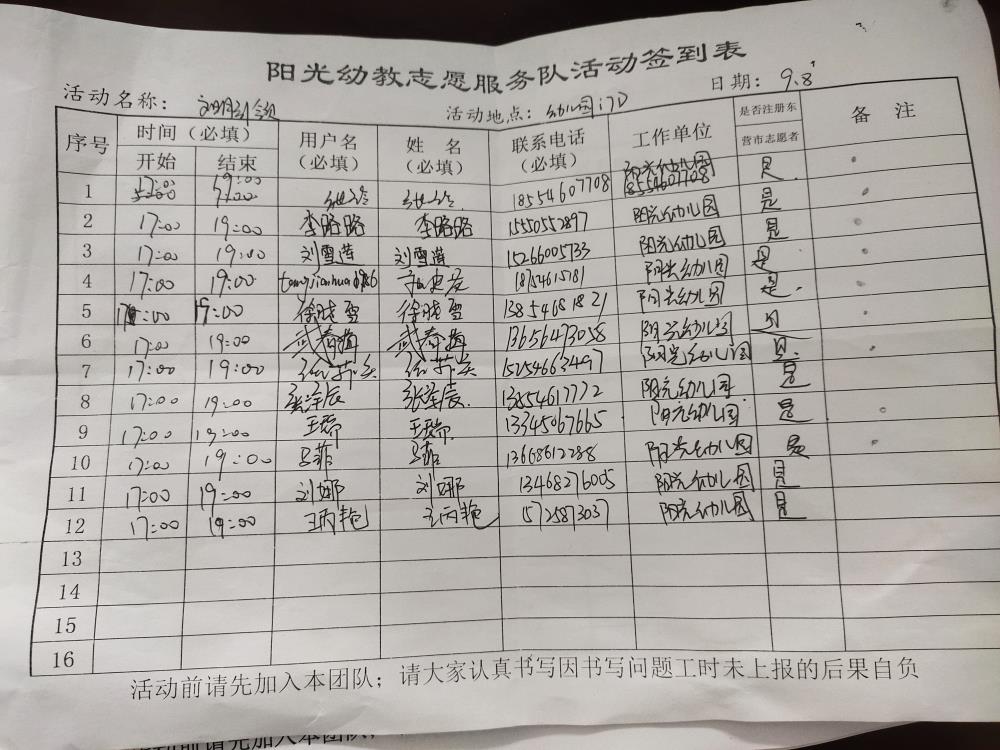 阳光幼教志愿服务队活动签到表
活动名称： 活动地点：幼儿园门口 日期：9.8
序号 时间（必填） 用户名（必填） 姓名（必填） 联系电话（必填） 工作单位 是否注册东营市志愿者 备注
开始 结束
1 17:00 19:00 18554607708 阳光幼儿园 18554607708 是
2 17:00 19:00 李路路 李路路 15550552897 阳光幼儿园 是
3 17:00 19:00 刘雪莲 刘雪莲 15266005733 阳光幼儿园 是
4 17:00 19:00 18754615181 阳光幼儿园 是
5 17:00 19:00 徐晓雪 徐晓雪 13854681821 阳光幼儿园 是
6 17:00 19:00 武春梅 武春梅 13656473058 阳光幼儿园 是
7 17:00 19:00 15254663497 阳光幼儿园 是
8 17:00 19:00 张泽辰 张泽辰 13854617772 阳光幼儿园 是
9 17:00 19:00 王瑞 王瑞 13345067665 阳光幼儿园 是
10 17:00 19:00 马菲 马菲 13668612288 阳光幼儿园 是
11 17:00 19:00 刘娜 刘娜 13468276005 阳光幼儿园 是
12 17:00 19:00 王丙艳 王丙艳 15725873037 阳光幼儿园 是
13
14
15
16
活动前请先加入本团队；请大家认真书写因书写问题工时未上报的后果自负